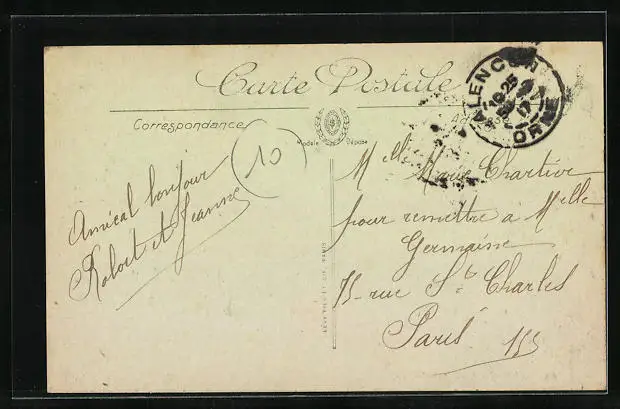 Carte Postale
Correspondance
Modèle Déposé
10
Amical bonjour
Robert et Jeanne
ALENCON
19 25
17
ORNE
Melle Marie Chartier
pour remettre à Melle
Germaine
75 rue St Charles
Paris 15e